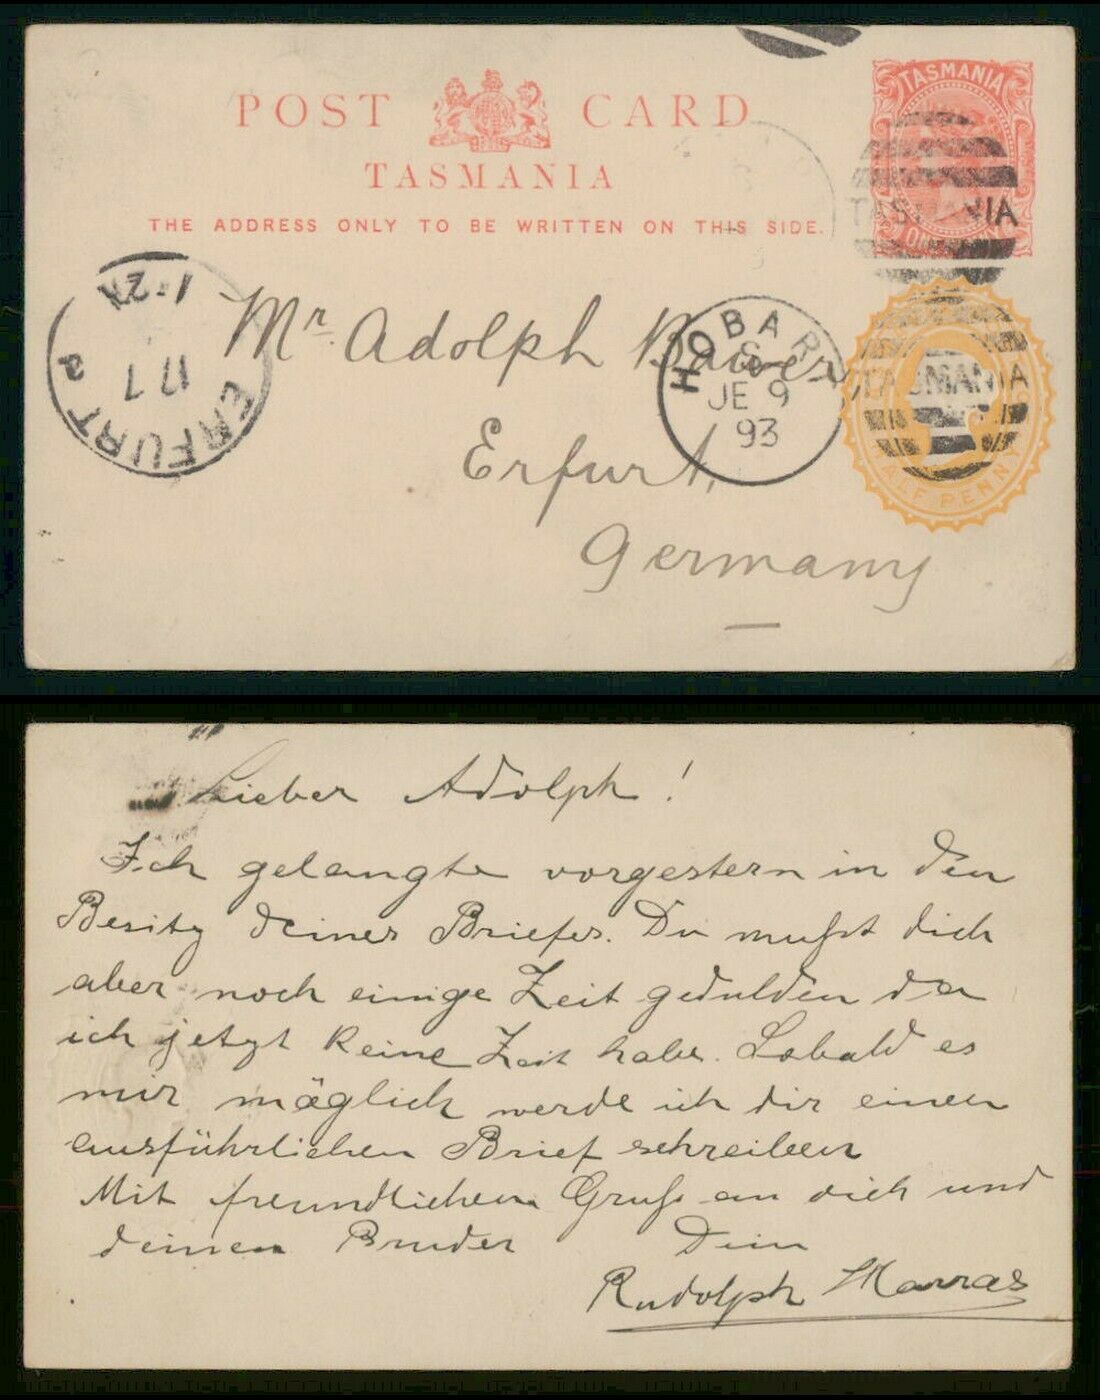 POST CARD
TASMANIA
THE ADDRESS ONLY TO BE WRITTEN ON THIS SIDE.
TASMANIA
TASMANIA
TASMANIA
HALF PENNY
HOBART
JE 9
93
ERFURT
1-2N
17 7
Mr. Adolph Bauer
Erfurt,
Germany
Lieber Adolph!
Ich gelangte vorgestern in den
Besitz deines Briefes. Du mußt dich
aber noch einige Zeit gedulden da
ich jetzt keine Zeit habe. Sobald es
mir möglich werde ich dir einen
ausführlichen Brief schreiben
Mit freundlichen Gruß an dich und
deinen Bruder Dein
Rudolph